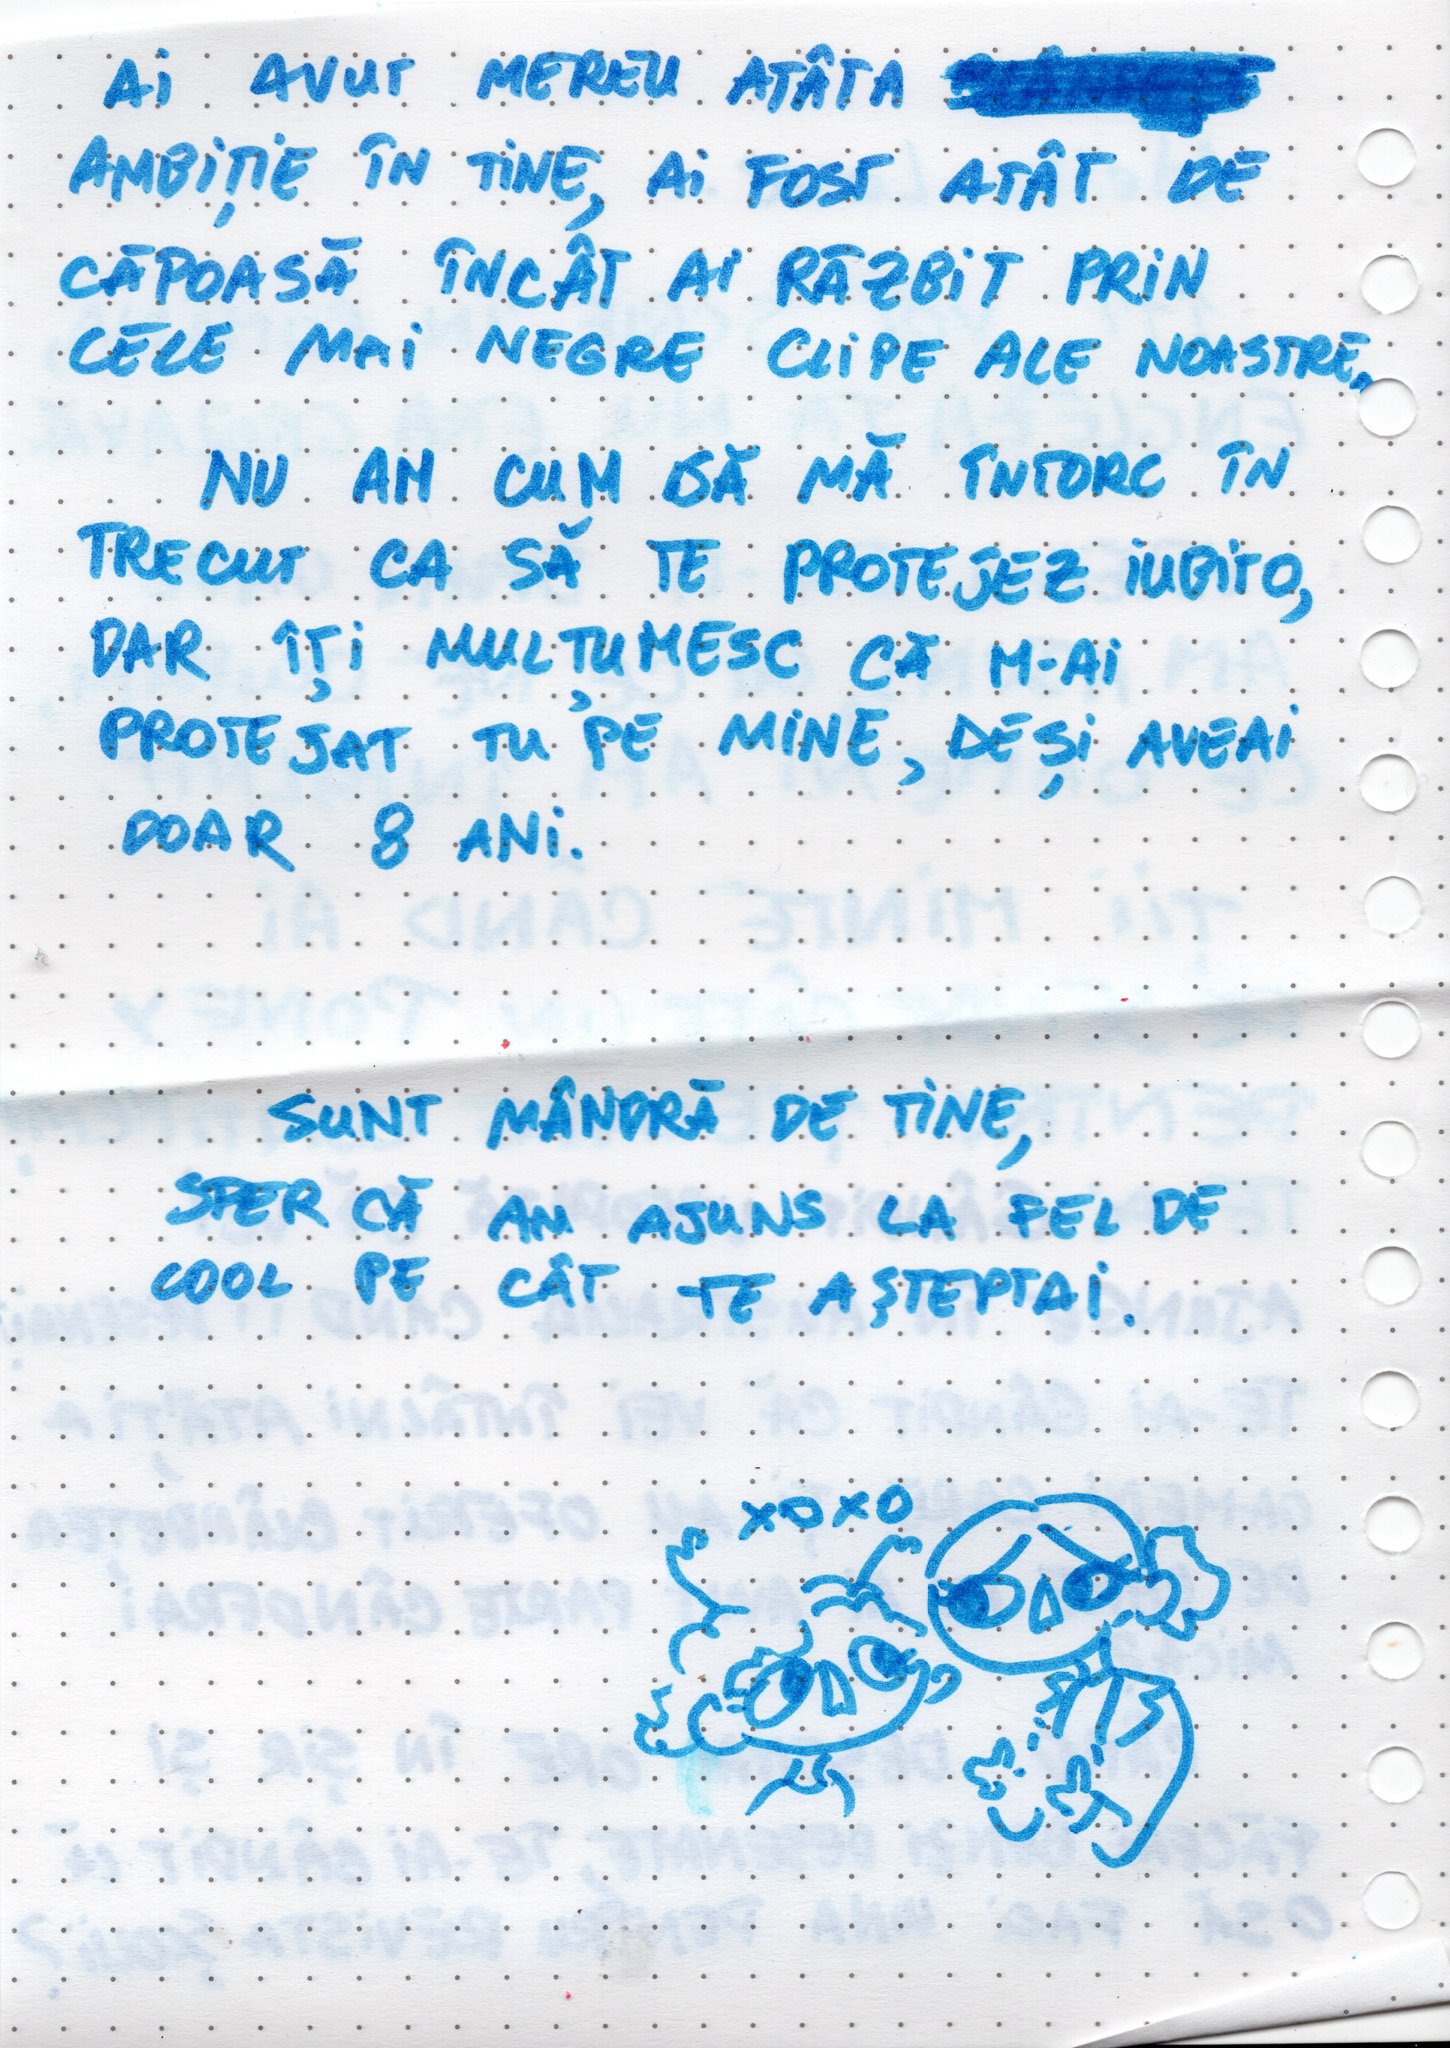 Ai AVUT MEREU ATÂTA
AMBIȚIE ÎN TINE, Ai FOST ATÂT DE
CĂPOASĂ ÎNCÂT Ai RĂZBIT PRIN
CELE MAi NEGRE CLIPE ALE NOASTRE.
NU AM CUM SĂ MĂ ÎNTORC ÎN
TRECUT CA SĂ TE PROTEJEZ iUBITO,
DAR ÎȚi MULȚUMESC CĂ M-Ai
PROTEJAT TU PE MINE, DEȘi AVEAi
DOAR 8 ANi.
SUNT MÂNDRĂ DE TINE,
SPER CĂ AM AJUNS LA FEL DE
COOL PE CÂT TE AȘTEPTAi.
XOXO